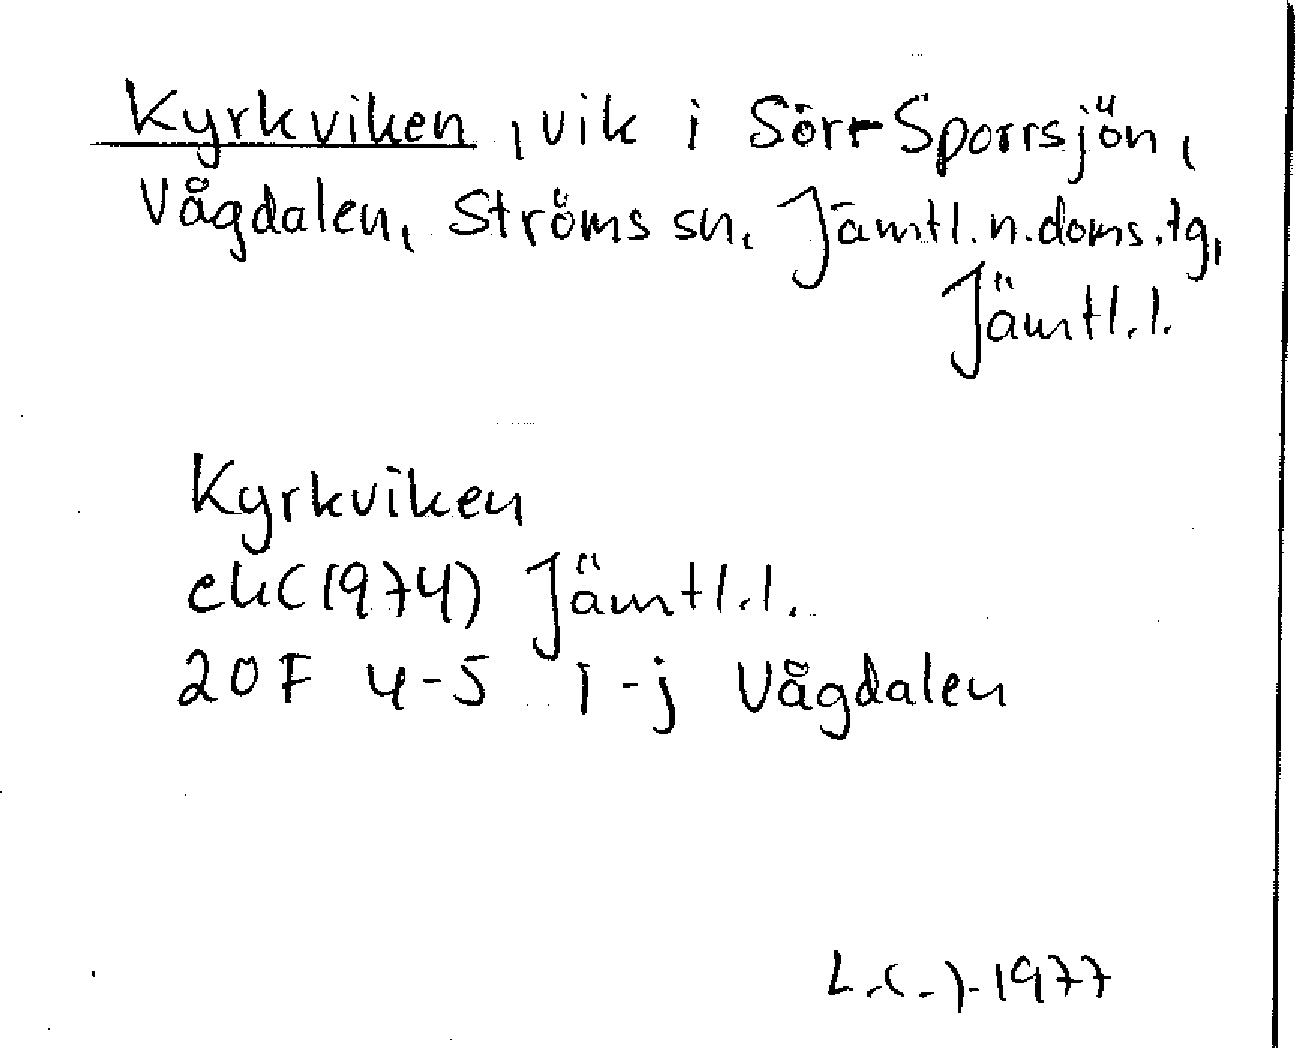 Kyrkviken, vik i Sörr-Sporrsjön,
Vågdalen, Ströms sn, Jämtl. n. doms. tg,
Jämtl. l.
Kyrkviken
ek(1974) Jämtl. l.
20F 4-5 i-j Vågdalen
1977